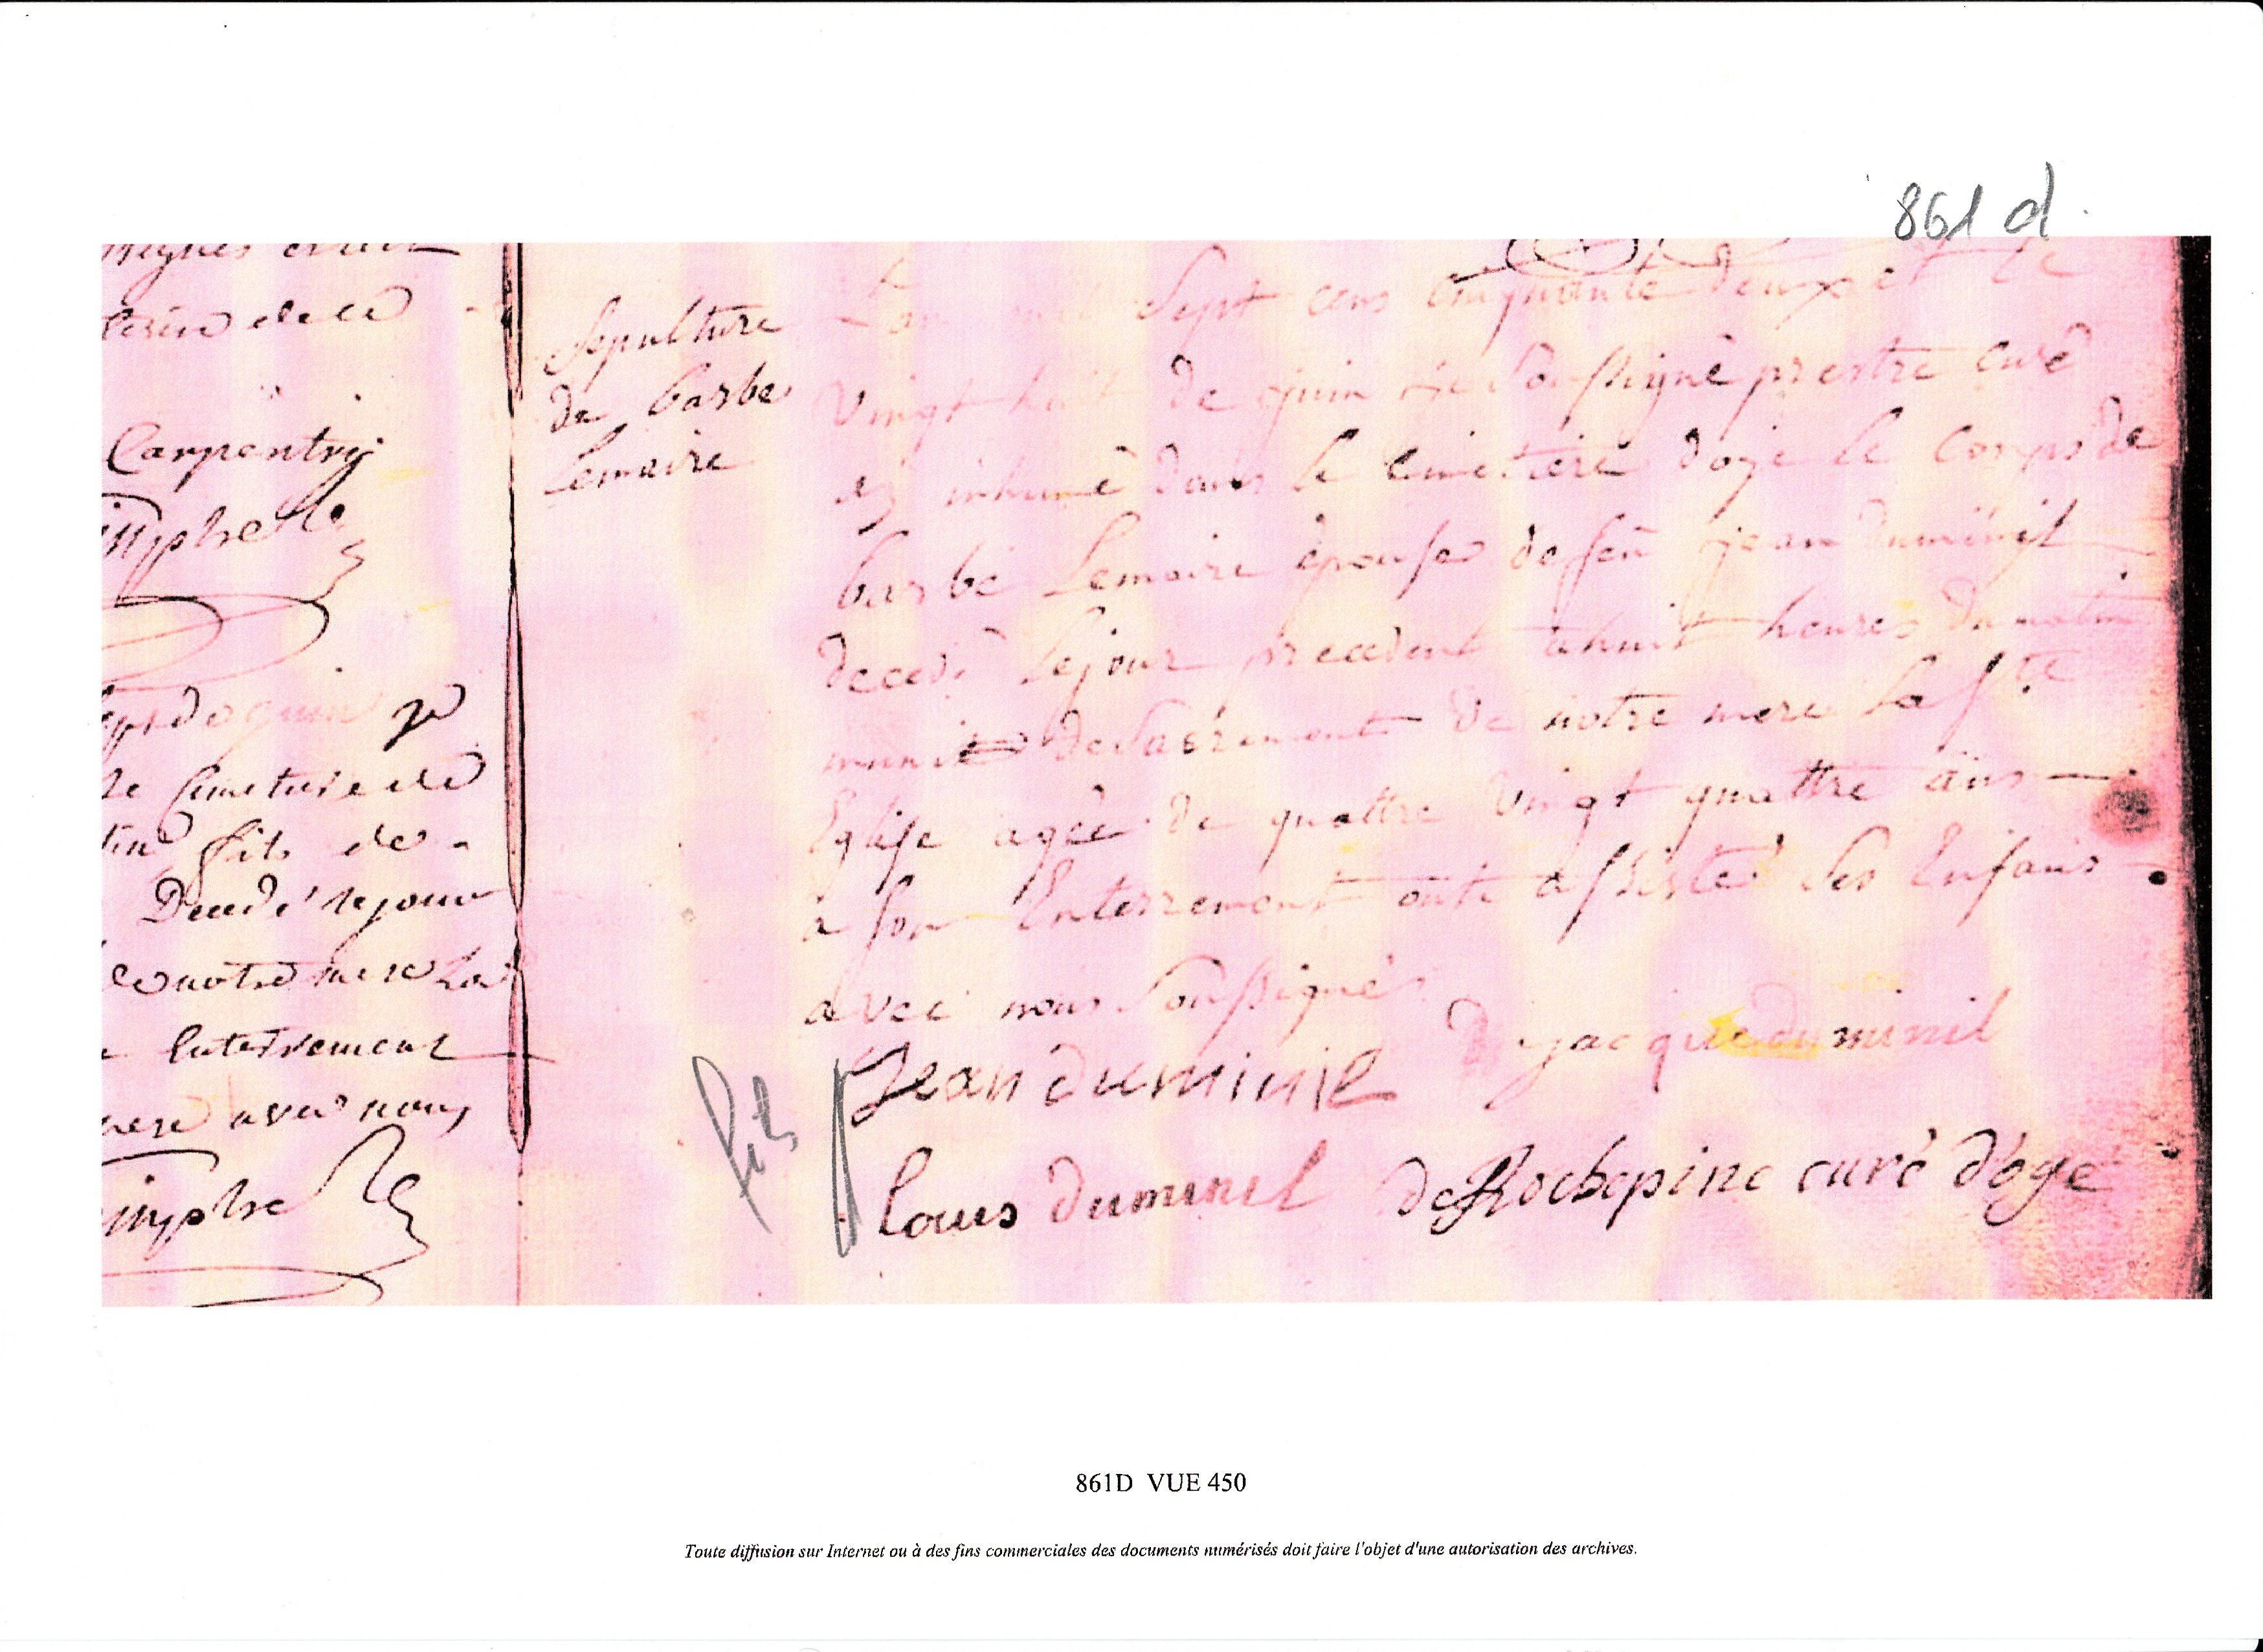 861 d.
Carpentry
Decedé le jour
enterrement
avec nous
Sepulture
de barbe
Lemaire
L'an mil Sept cens cinquante deux et le
vingt huit de juin Je Soussigné prestre curé
ay inhumé dans le cimetiere d'oge le corps de
barbe Lemaire épouse de feü jean duminil
decedé le jour precedent a huit heures du matin
munie de Sacrement de notre mere la Ste
Eglise agée de quattre vingt quattre ans
a son Enterrement onte assisté Ses Enfans
avec nous Soussignés
Jean duminil
jacque duminil
fils
louis duminil
de Rochepine curé d'ôge
861D VUE 450
Toute diffusion sur Internet ou à des fins commerciales des documents numérisés doit faire l'objet d'une autorisation des archives.